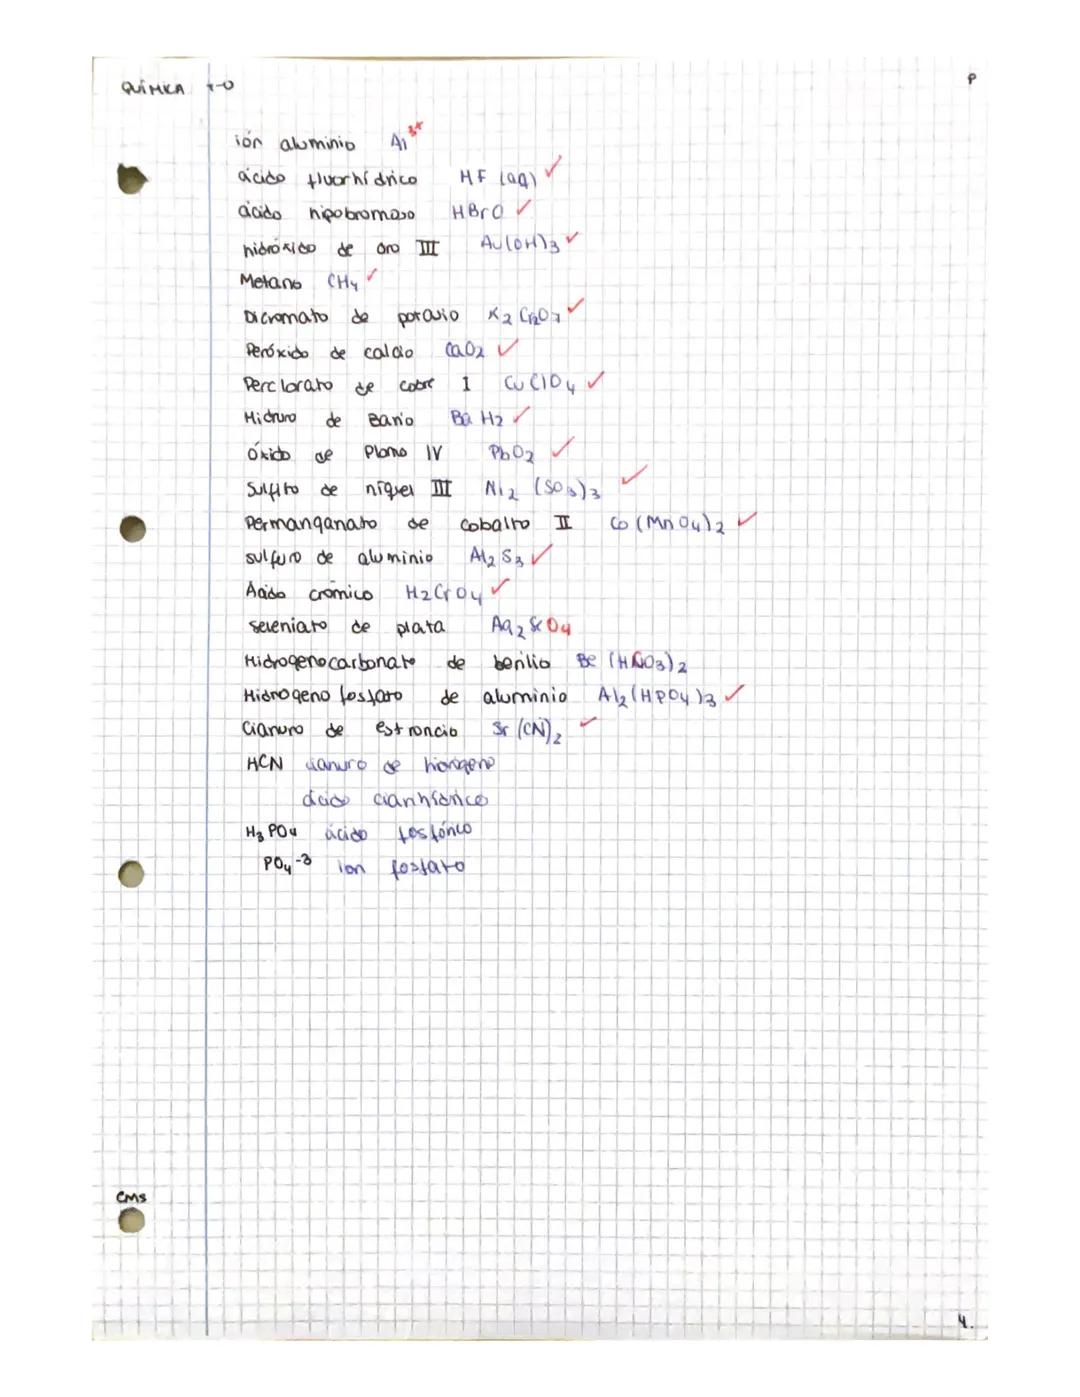 QUÍMICA
P
ión aluminio Al³⁺
ácido fluorhídrico HF (aq) ✓
ácido hipobromoso HBrO ✓
hidróxido de oro III Au(OH)₃ ✓
Metano CH₄ ✓
Dicromato de potasio K₂Cr₂O₇ ✓
Peróxido de calcio CaO₂ ✓
Perclorato de cobre I CuClO₄ ✓
Hidruro de Bario BaH₂ ✓
óxido de Plomo IV PbO₂ ✓
Sulfito de níquel III Ni₂(SO₃)₃ ✓
Permanganato de cobalto II Co(MnO₄)₂ ✓
sulfuro de aluminio Al₂S₃ ✓
Ácido crómico H₂CrO₄ ✓
seleniato de plata Ag₂SeO₄
Hidrogenocarbonato de berilio Be(HCO₃)₂
Hidrogeno fosfato de aluminio Al₂(HPO₄)₃ ✓
Cianuro de estroncio Sr(CN)₂ ✓
HCN cianuro de hidrógeno
ácido cianhídrico
H₃PO₄ ácido fosfórico
PO₄⁻³ ion fosfato
CMS
4.